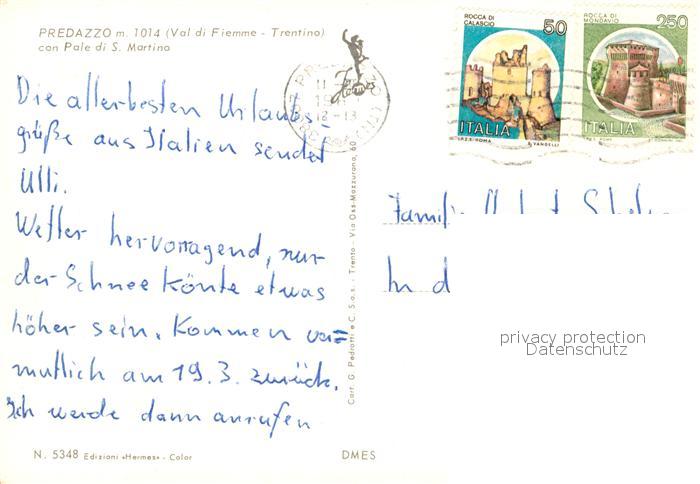 PREDAZZO m. 1014 (Val di Fiemme - Trentino)
con Pale di S. Martino
Die allerbesten Urlaubs-
grüße aus Italien sendet
Ulli.
Wetter hervorragend, nur
der Schnee könte etwas
höher sein. Kommen ver=
mutlich am 19. 3. zurück.
Ich werde dann anrufen
N. 5348 Edizioni «Hermes» - Color
DMES
Cart. G. Pedrotti e C. S.a.s. - Trento - Via Oss-Mazzurana, 60
ROCCA DI
CALASCIO
50
ITALIA
I.P.Z.S. ROMA E. VANGELLI
ROCCA DI
MONDAVIO
250
ITALIA
Familie
privacy protection
Datenschutz